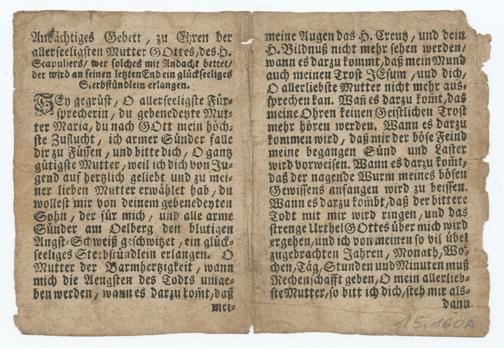 Andächtiges Gebett, zu Ehren der
allerseeligsten Mutter GOttes, des H.
Scapuliers, wer solches mit Andacht bettet,
der wird an seinen letzten End ein glückseeliges
Sterbstündlein erlangen.
SEy gegrüst, O allerseeligste Für-
sprecherin, du gebenedeyte Mut-
ter Maria, du nach GOtt mein höch-
ste Zuflucht, ich armer Sünder falle
dir zu Füssen, und bitte dich, O gantz
gütigste Mutter, weil ich dich von Ju-
gend auf hertzlich geliebt und zu mei-
ner lieben Mutter erwählet hab, du
wollest mir von deinem gebenedeyten
Sohn, der für mich, und alle arme
Sünder am Oelberg den blutigen
Angst-Schweiß geschwitzet, ein glück-
seeliges Sterbstündlein erlangen. O
Mutter der Barmhertzigkeit, wann
mich die Aengsten des Todts umge-
ben werden, wann es darzu kom̃t, daß
mei-
meine Augen das H. Creutz, und dein
H. Bildnuß nicht mehr sehen werden,
wann es darzu kommt, daß mein Mund
auch meinen Trost JEsum, und dich,
O allerliebste Mutter nicht mehr aus-
sprechen kan. Wañ es darzu kom̃t, das
meine Ohren keinen Geistlichen Trost
mehr hören werden. Wann es darzu
kommen wird, daß mir der böse Feind
meine begangen Sünd und Laster
wird vorweisen. Wann es darzu kom̃t,
daß der nagende Wurm meines bösen
Gewissens anfangen wird zu beissen.
Wann es darzu kombt, daß der bittere
Todt mit mir wird ringen, und das
strenge Urthel GOttes über mich wird
ergehen, und ich von meinen so vil über
zugebrachten Jahren, Monath, Wo-
chen, Täg, Stunden und Minuten muß
Rechenschafft geben, O mein allerlieb-
ste Mutter, so bitt ich dich, steh mir als-
dann
15.160A